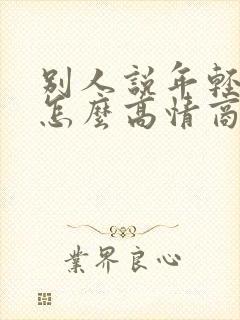 別人說年輕
怎麼高情商
業界良心